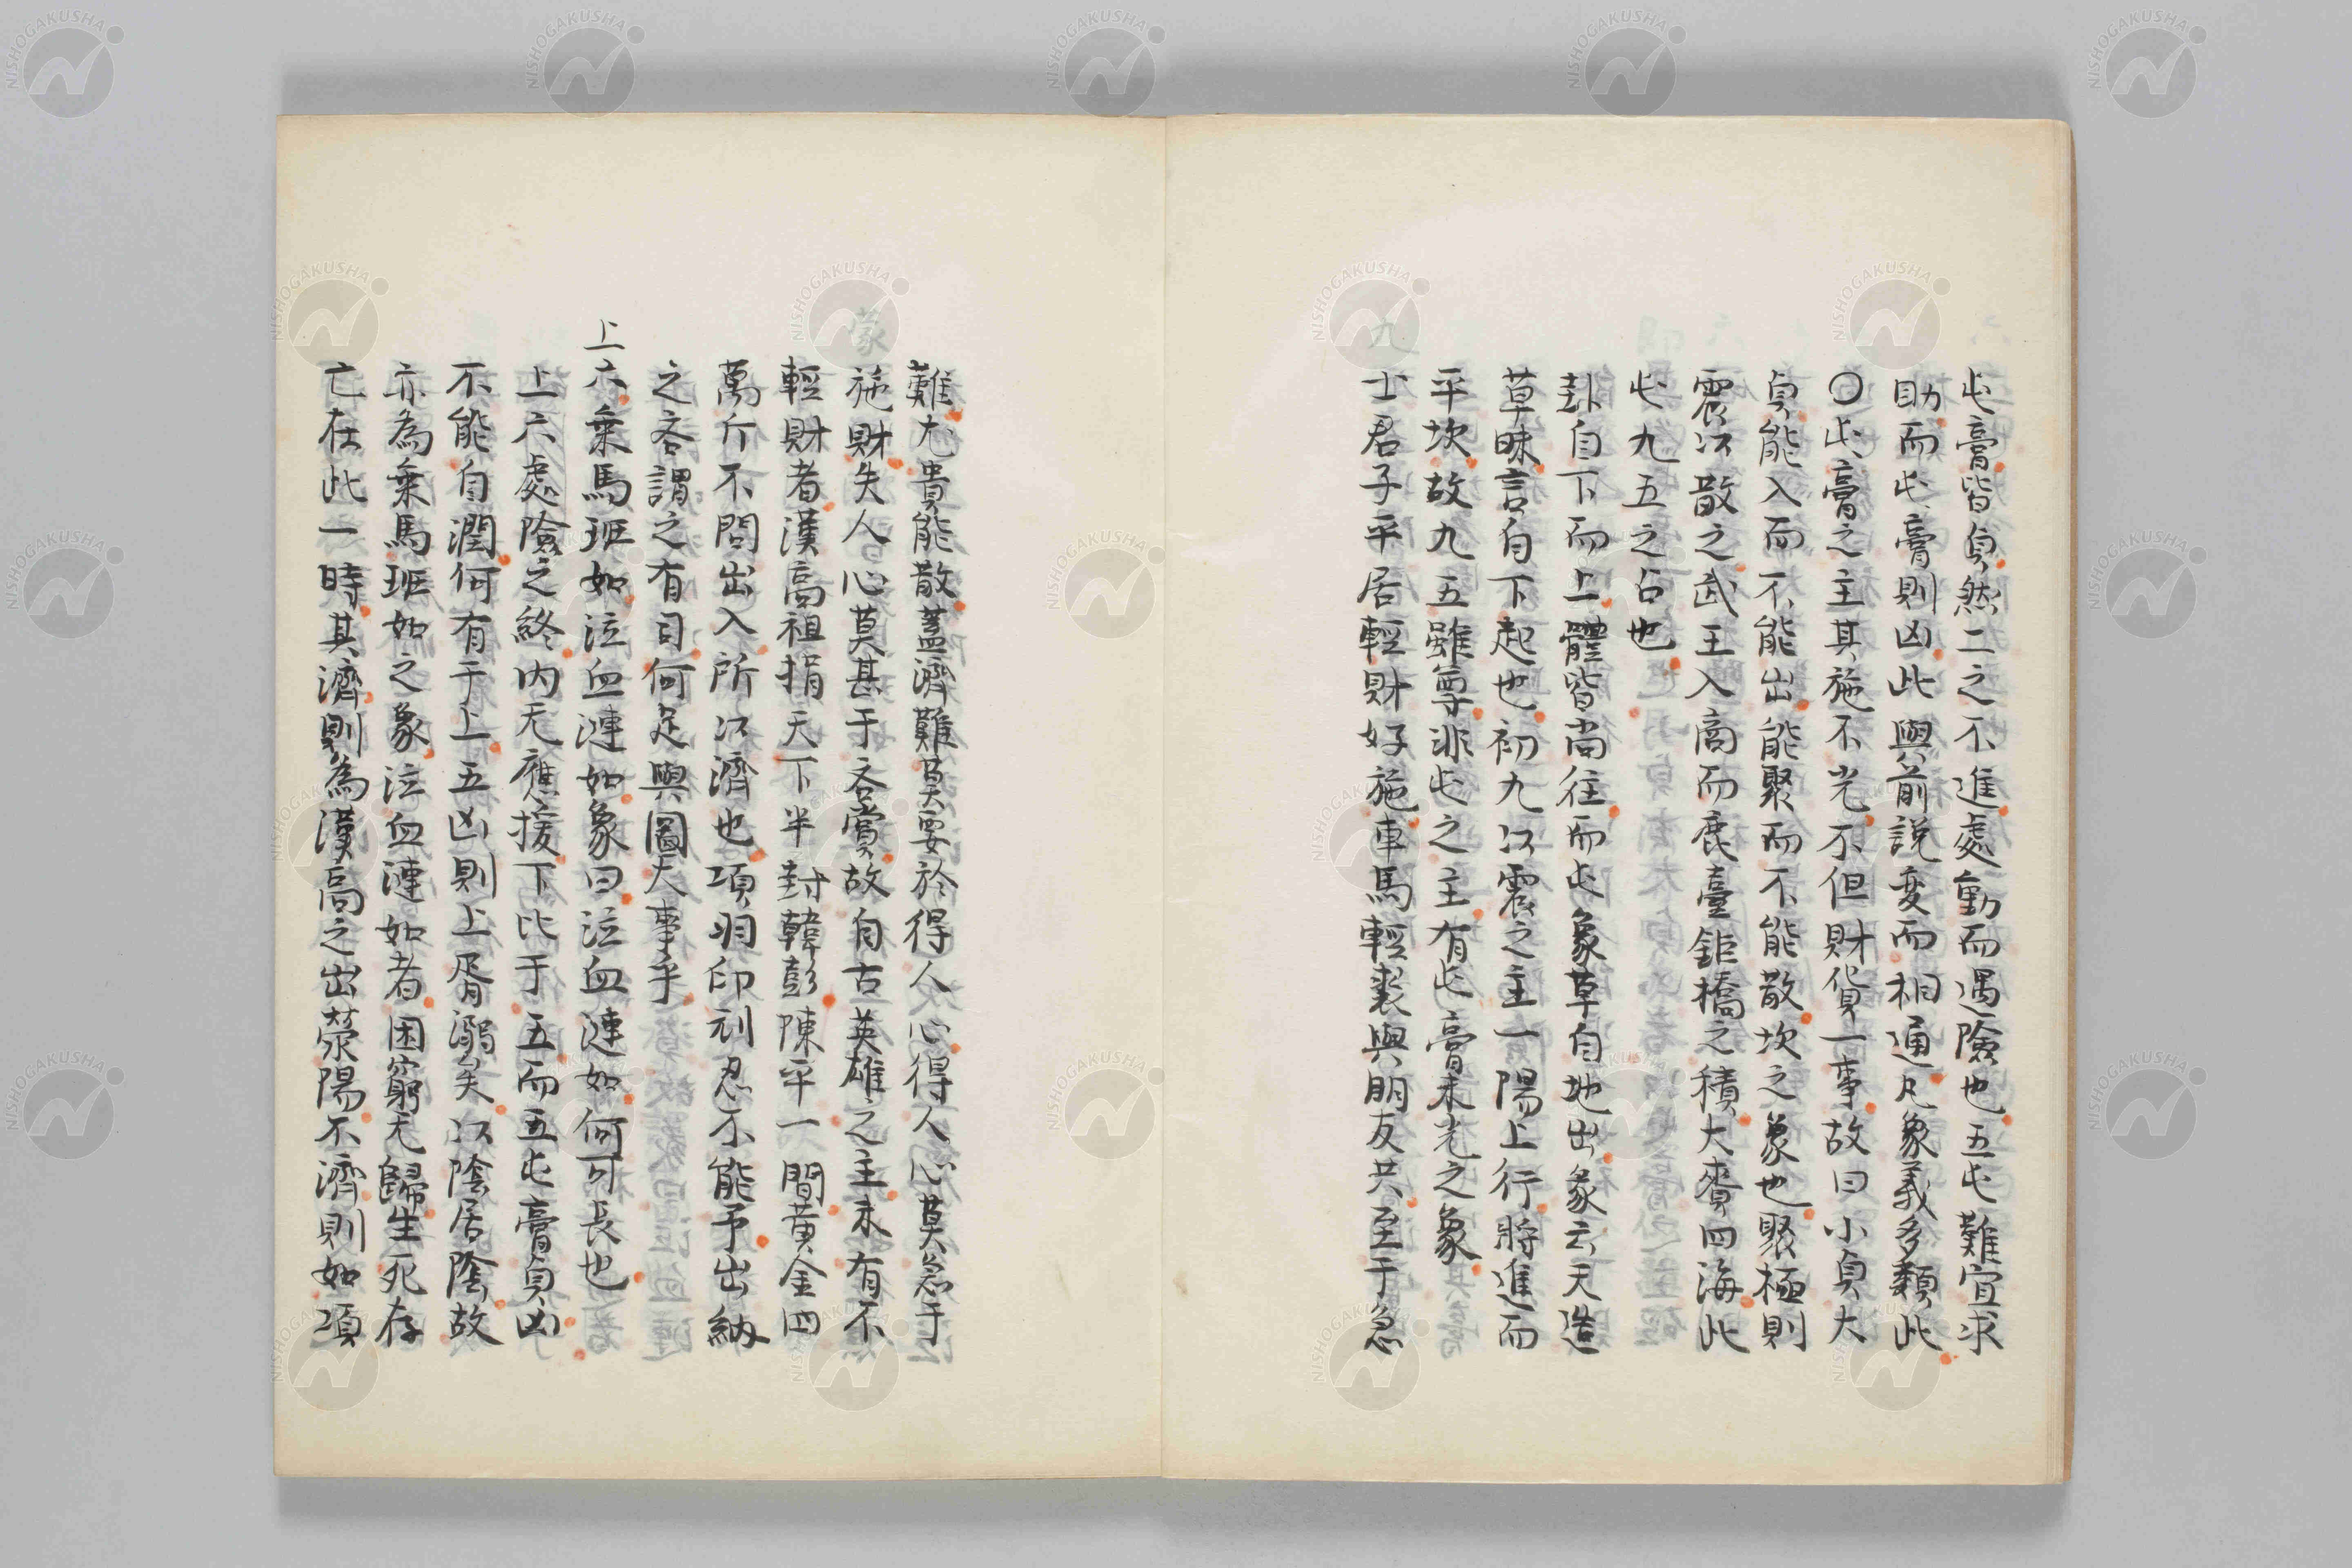 屯膏皆貞然二之不進處動而遇險也五屯難宜求
助而屯膏則凶此與前説変而相通凡象義多類此
〇屯膏之主其施不光不但財貨一事故曰小貞大
貞能入而不能出能聚而不能散坎之象也聚極則
震以散之武王入商而鹿臺鉅橋之積大賚四海此
屯九五之占也
卦自下而上體皆尚往而屯象草自地出彖云天造
草昧言自下起也初九以震之主一陽上行將進而
平坎故九五雖尊非屯之主有屯膏未光之象
士君子平居輕財好施車馬輕裘與朋友共至于急
難尤貴能散蓋濟難莫要於得人心得人心莫急于
施財失人心莫甚于吝賞故自古英雄之主未有不
輕財者漢高祖捐天下半封韓彭陳平一間黄金四
萬斤不問出入所以濟也項羽印刓忍不能予出納
之吝謂之有司何足與圖大事乎
上六乗馬班如泣血漣如象曰泣血漣如何可長也
上六處險之終内无應援下比于五而五屯膏貞凶
不能自潤何有于上五凶則上胥溺矣以陰居陰故
亦為乗馬班如之象泣血漣如者困窮无歸生死存
亡在此一時其濟則為漢高之出滎陽不濟則如項